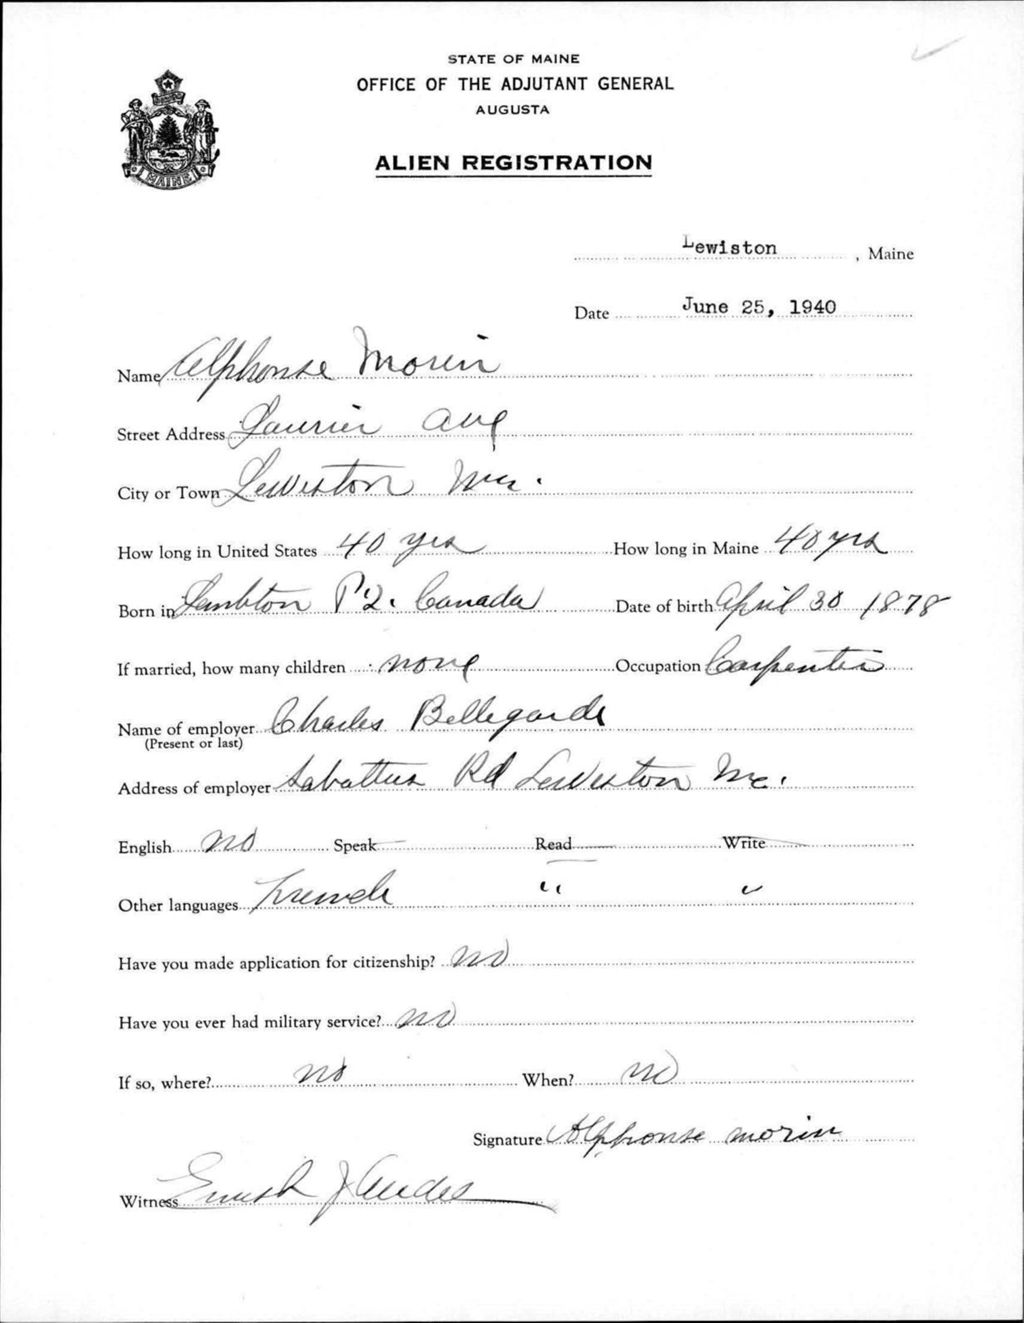 STATE OF MAINE
OFFICE OF THE ADJUTANT GENERAL
AUGUSTA
ALIEN REGISTRATION
MAINE
Lewiston, Maine
Date June 25, 1940
Name Alphonse Morin
Street Address Laurier Ave
City or Town Lewiston Me.
How long in United States 40 yrs How long in Maine 40 yrs
Born in Lambton P.Q. Canada Date of birth April 30 1878
If married, how many children none Occupation Carpenter
Name of employer Charles Bellegarde
(Present or last)
Address of employer Sabattus Rd Lewiston Me.
English no Speak Read Write
Other languages French " "
Have you made application for citizenship? no
Have you ever had military service? no
If so, where? no When? no
Signature Alphonse morin
Witness J